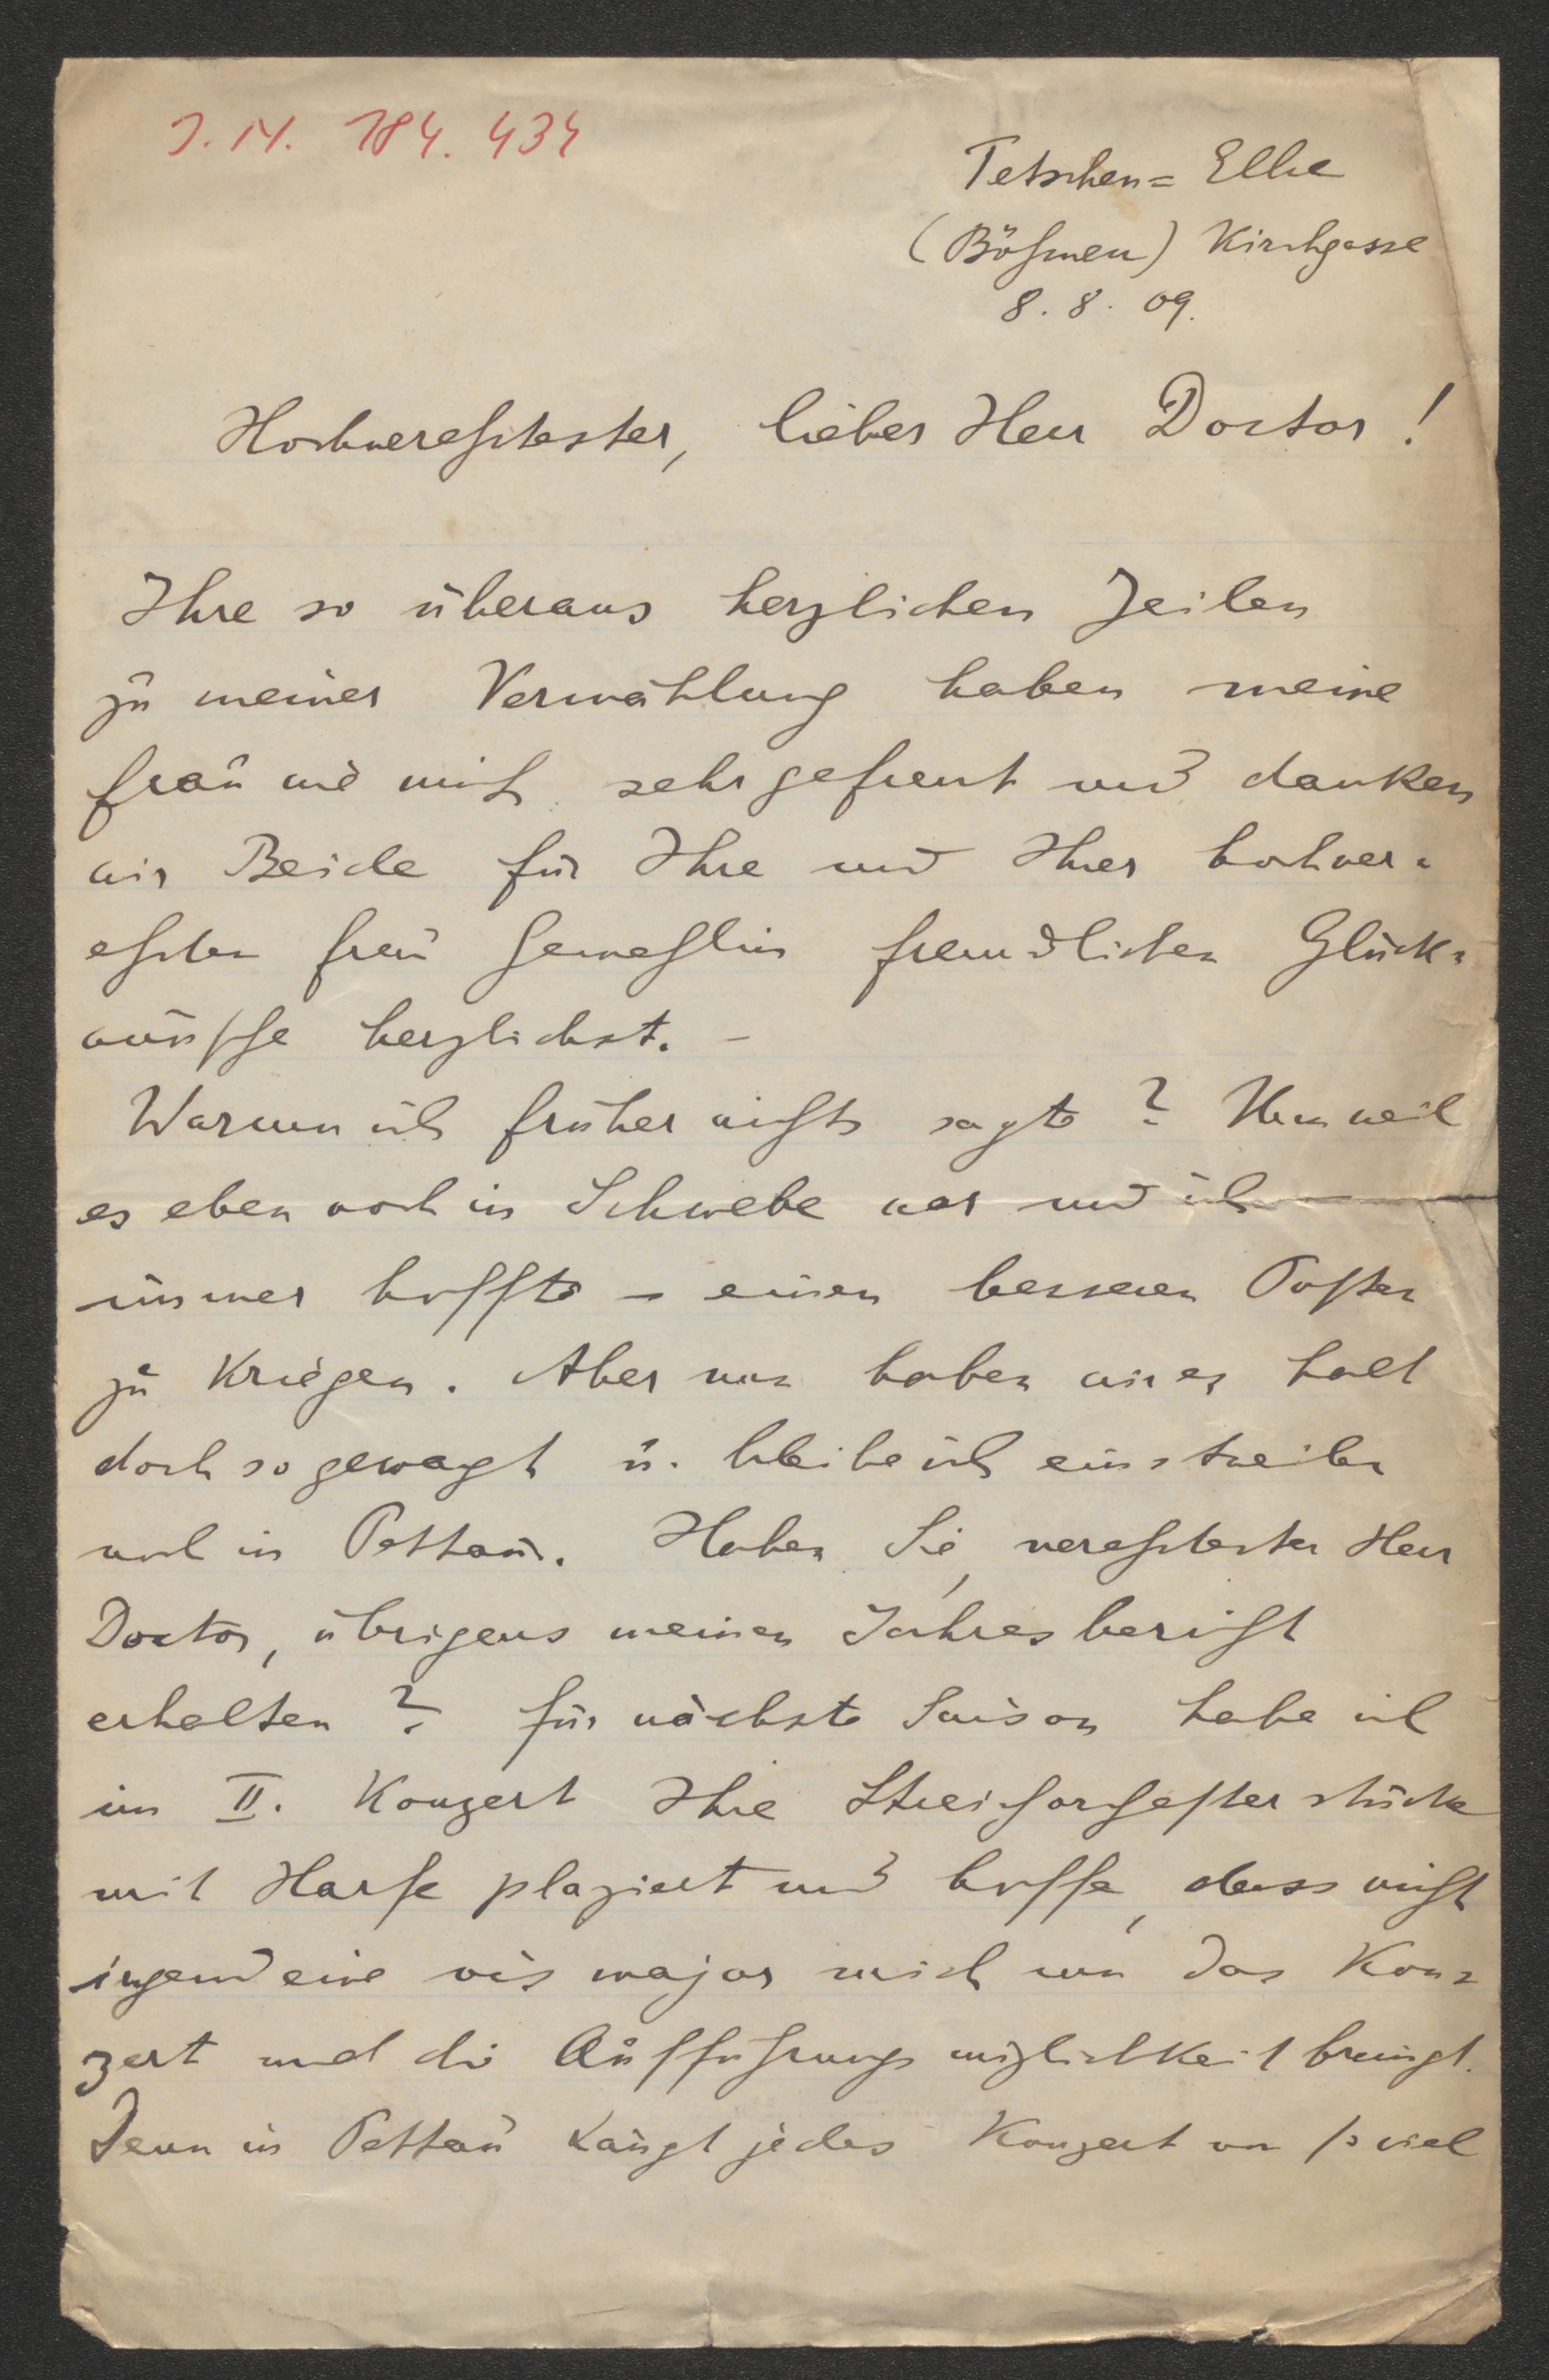 J. N. 184. 434
Tetschen= Elbe
(Böhmen) Kirchgasse
8. 8. 09.
Hochverehrtester, lieber Herr Doctor!
Ihre so überaus herzlichen Zeilen
zu meiner Vermählung haben meine
Frau wie mich sehr gefreut und danken
wir Beide für Ihre und Ihrer hochver=
ehrten Frau Gemahlin freundlichen Glück=
wünsche herzlichst. –
Warum ich früher nichts sagte? Nun weil
es eben noch in Schwebe war und ich
immer hoffte – einen besseren Posten
zu kriegen. Aber nun haben wir es halt
doch so gewagt u. bleibe ich einstweilen
noch in Pettau. Haben Sie, verehrtester Herr
Doctor, übrigens meinen Jahresbericht
erhalten? Für nächste Saison habe ich
im II. Konzert Ihre Streichorchesterstücke
mit Harfe plaziert und hoffe, dass nicht
irgend eine vis major mich um das Kon=
zert und die Aufführungsmöglichkeit bringt.
Denn in Pettau hängt jedes Konzert von so viel